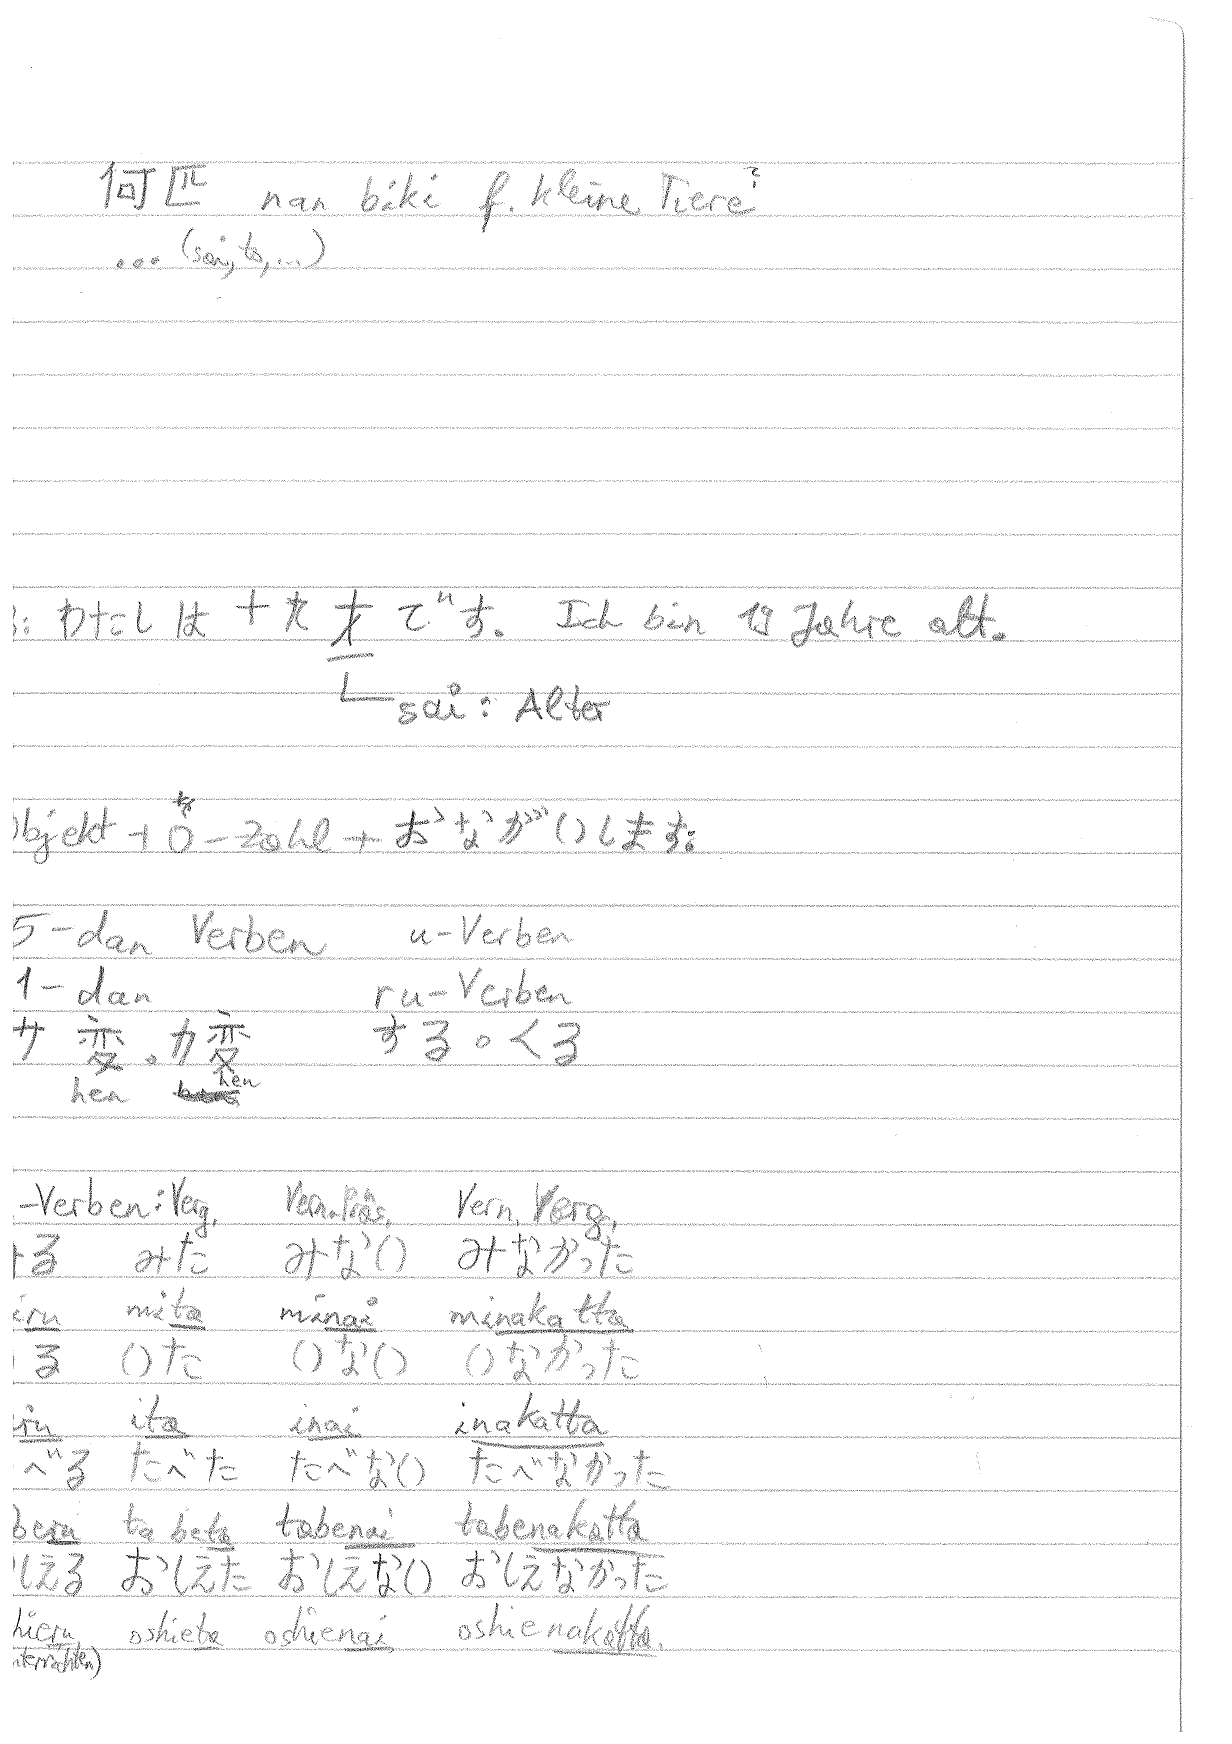 何匹 nan biki f. kleine Tiere?
... (sai, to, ...)
: わたし は 十九 才 です。 Ich bin 19 Jahre alt.
sai: Alter
bjekt + を - Zahl + おながいします。
5-dan Verben u-Verben
1-dan ru-Verben
サ変。カ変 する。くる
hen hen
-Verben: Verg. Vern. Präs. Vern. Verg.
る みた みない みなかった
iru mita minai minakatta
る いた いない いなかった
iru ita inai inakatta
べる たべた たべない たべなかった
beru tabeta tabenai tabenakatta
しえる おしえた おしえない おしえなかった
hieru oshieta oshienai oshienakatta.
nterrichten)